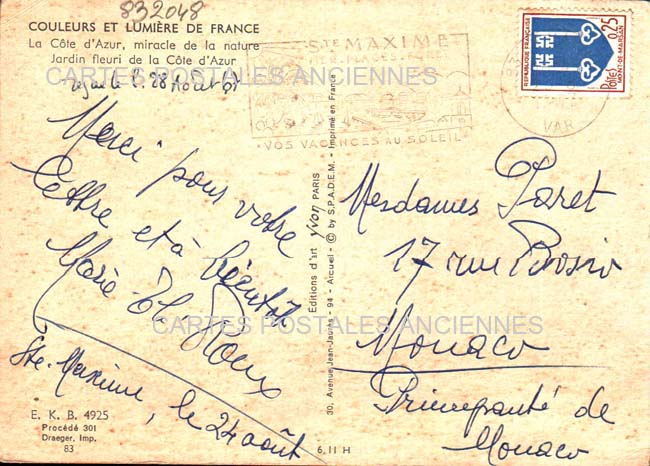 832048
COULEURS ET LUMIÈRE DE FRANCE
La Côte d'Azur, miracle de la nature
Jardin fleuri de la Côte d'Azur
CARTES POSTALES ANCIENNES
28 Août
Merci pour votre
lettre et à bientôt
Marie
Roux
Ste. Maxime, le 24 août
E. K. B. 4925
Procédé 301
Draeger, Imp.
83
STE MAXIME
VOS VACANCES AU SOLEIL
VAR
REPUBLIQUE FRANÇAISE
0,25
Postes
MONT-DE-MARSAN
Editions d'art yvon PARIS
30, Avenue Jean-Jaurès - 94 - Arcueil - © by S.P.A.D.E.M. - Imprimé en France
6. 11 H
Mesdames Paret
17 rue Bosio
Monaco
Principauté de
Monaco
CARTES POSTALES ANCIENNES